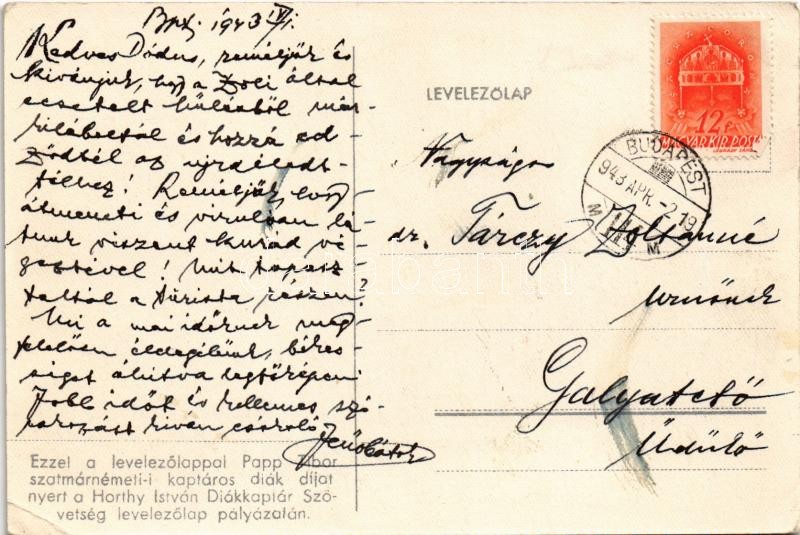 Bpt. 1943 IV/1.
Kedves Dódus, reméljük és
kivánjuk, hogy a Zoli által
ecsetelt hülésből már
kilábaltál és hozzá
az ujraéledt
Reméljük, hogy
átmeneti és virulóan lá-
tunk viszont kurád vé-
geztével! Mit tapasz-
taltál a túrista részen?
Mi a mai időknek meg-
felelően éldegélünk, békes-
siget áhitva legfőképen!
Jobb időt és kellemes szó-
rakozást kiván csókoló
Jenőbátok
Ezzel a levelezőlappal Papp Tibor
szatmárnémeti-i kaptáros diák díjat
nyert a Horthy István Diákkaptár Szö-
vetség levelezőlap pályázatán.
LEVELEZŐLAP
12 f
MAGYAR KIR. POSTA
BUDAPEST
943 APR. -2 19
M M
Nagyságos
dr. Tárczy Zoltánné
urnőnek
Galyatető
Üdülő